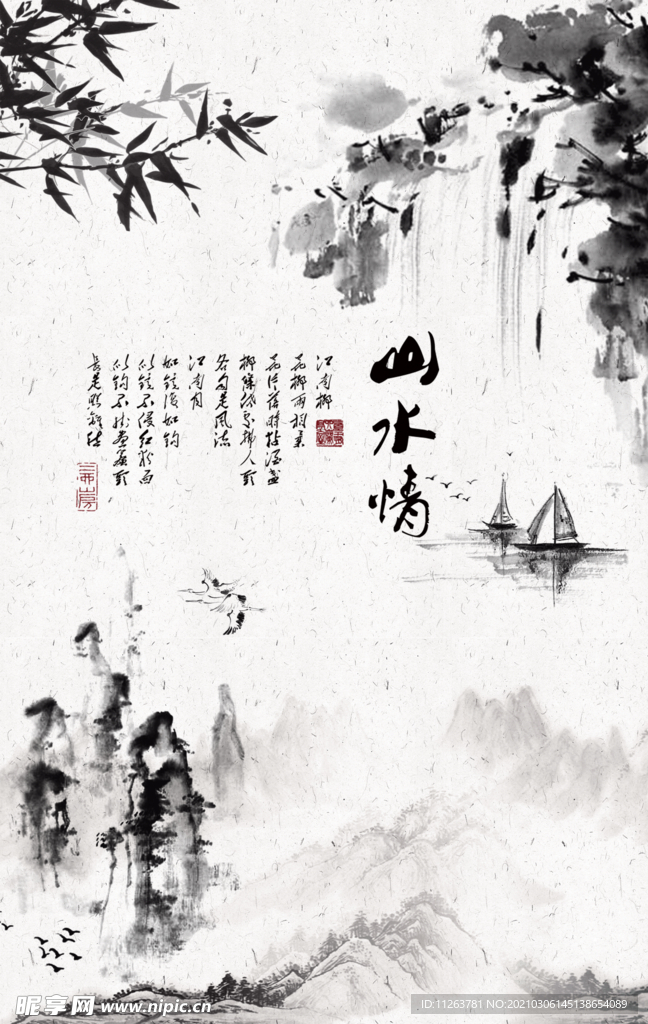 山水情
江南柳
花柳两相柔
花片落时粘酒盏
柳条低处拂人头
各自是风流
江南月
如镜复如钩
似镜不侵红粉面
似钩不挂画帘头
长是照离愁
昵享网 www.nipic.cn
ID:11263781 NO:20210306145138654089